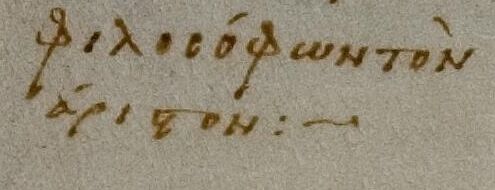 φιλοσόφων τὸν
ἄριστον:~